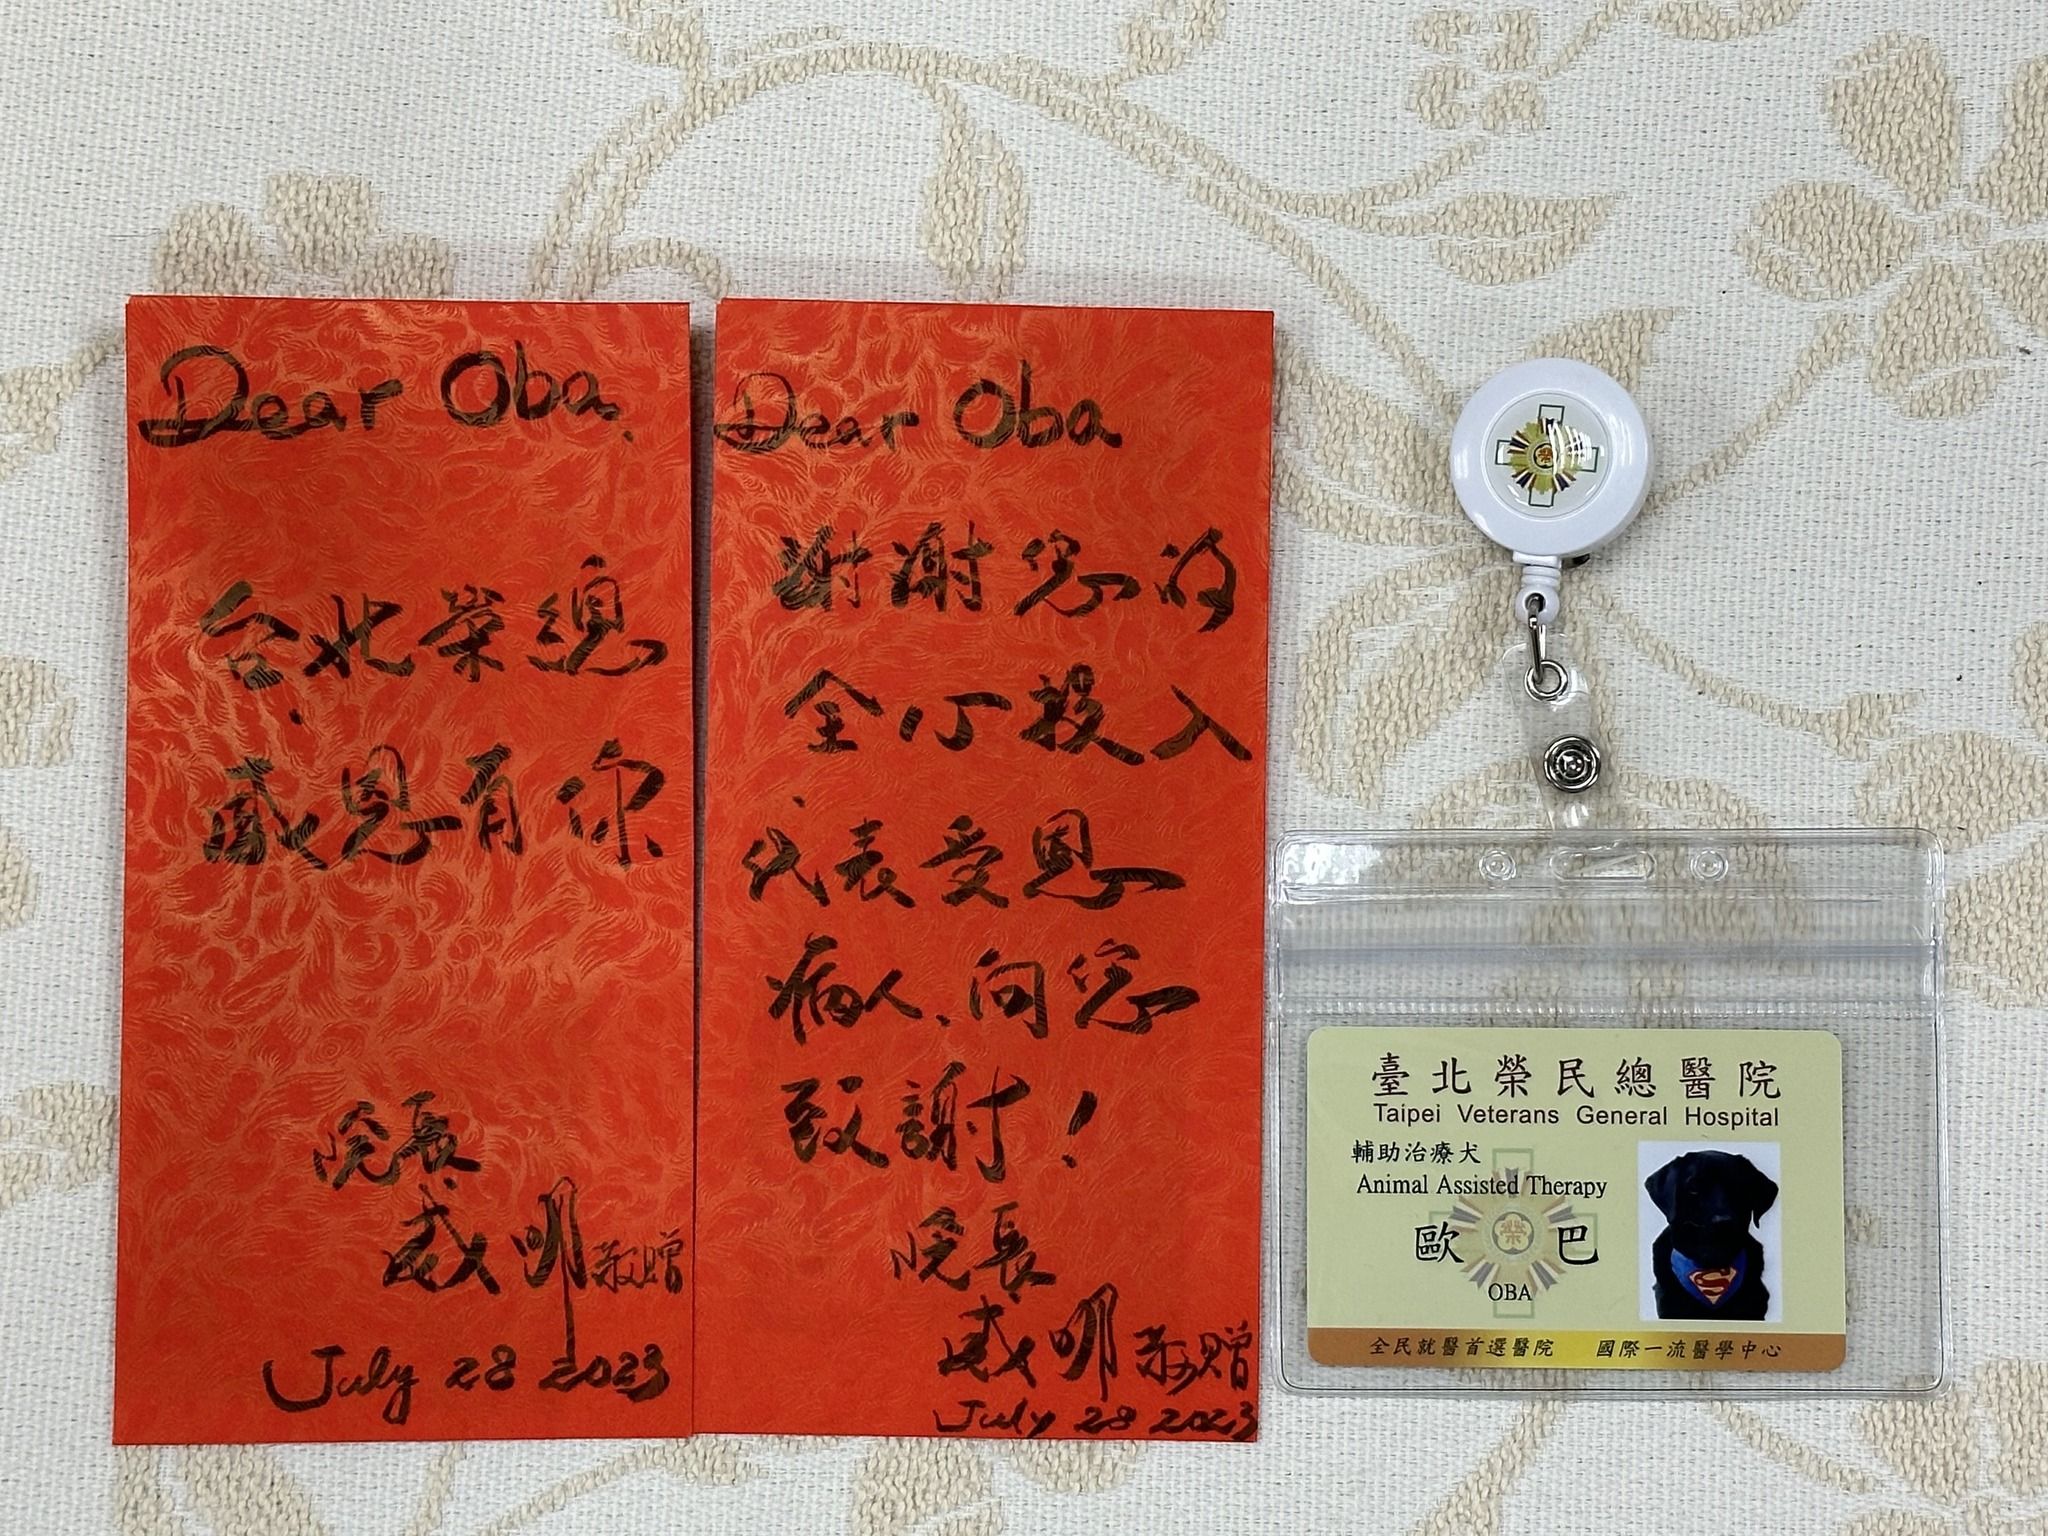 Dear Oba,
台北榮總
感恩有你
院長
威明敬贈
July 28 2023
Dear Oba
謝謝您的
全心投入
代表受恩
病人,向您
致謝!
院長
威明敬贈
July 28 2023
榮
臺北榮民總醫院
Taipei Veterans General Hospital
輔助治療犬
Animal Assisted Therapy
歐巴
OBA
榮
S
全民就醫首選醫院 國際一流醫學中心